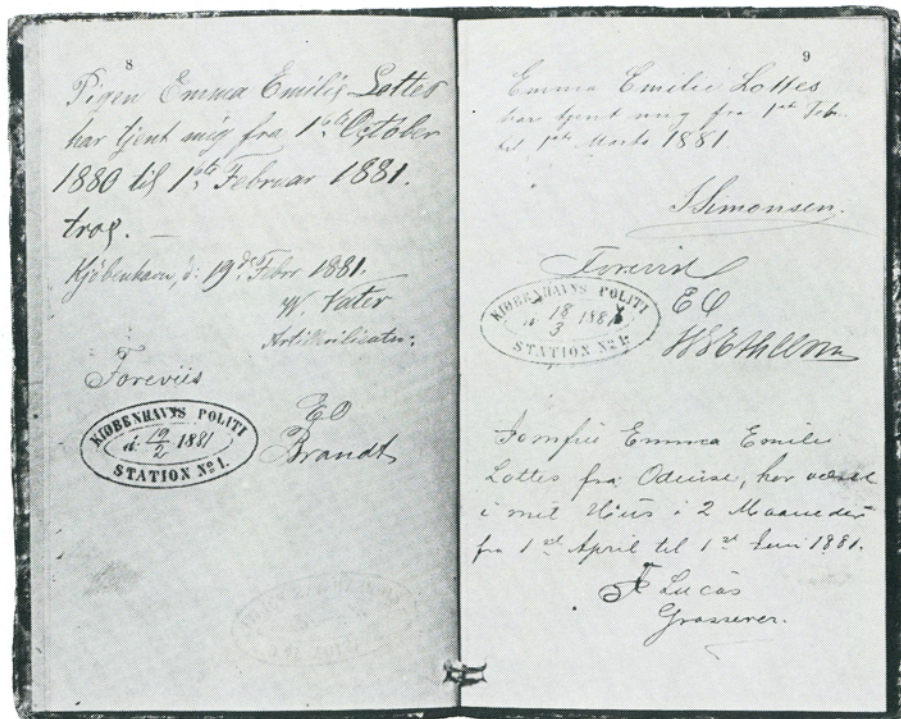 8
Pigen Emma Emilie Lottes
har tjent mig fra 1ste October
1880 til 1ste Februar 1881.
troe. —
Kjøbenhavn, d: 19de Febr 1881.
W. Vater
Foreviis
KIØBENHAVNS POLITI
d. 19/2 1881
STATION No 1.
EO
Brandt
9
Emma Emilie Lottes
har tjent mig fra 1ste Feb.
til 1ste Marts 1881
S Simonsen.
Forevist
KIØBENHAVNS POLITI
d. 18/3 1881
STATION No 1.
EO
Jomfru Emma Emilie
Lottes fra Odense, har været
i mit Huus i 2 Maaneder
fra 1st April til 1st Juni 1881.
F Lucas
Grosserer.